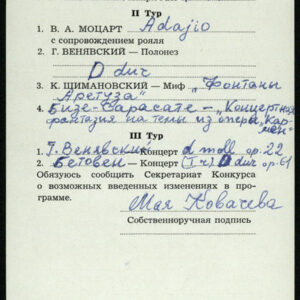 II Тур
1. В. А. МОЦАРТ Adajio
с сопровождением рояля
2. Г. ВЕНЯВСКИЙ — Полонез
D dur
3. К. ШИМАНОВСКИЙ — Миф „Фонтаны
Аретуза"
4. Бизе-Сарасате — „Концертная
фантазия на темы из оперы „Кар-
мен"
III Тур
1. Г. Венявский — Концерт d moll op. 22
2. Бетовен — Концерт (I ч) D dur op. 61
Обязуюсь сообщить Секретариат Конкурса
о возможных введенных изменениях в про-
грамме.
Мая Ковачева
Собственноручная подпись